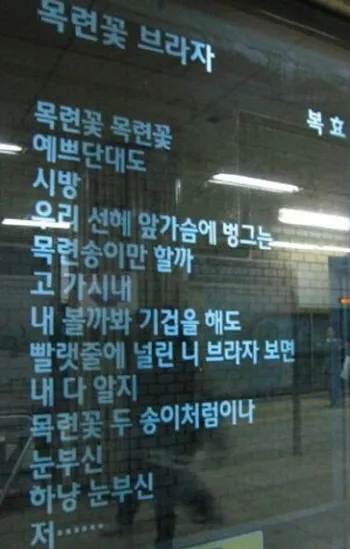 목련꽃 브라자
복효
목련꽃 목련꽃
예쁘단대도
시방
우리 선혜 앞가슴에 벙그는
목련송이만 할까
고 가시내
내 볼까봐 기겁을 해도
빨랫줄에 널린 니 브라자 보면
내 다 알지
목련꽃 두 송이처럼이나
눈부신
하냥 눈부신
저……